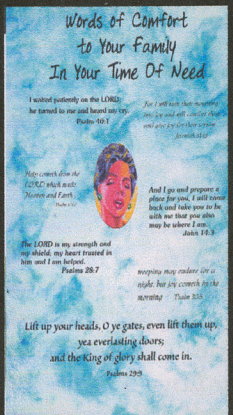 Words of Comfort
to Your Family
In Your Time Of Need
I waited patiently on the LORD;
he turned to me and heard my cry.
Psalm 40:1
For I will turn their mourning
into joy and will comfort them
and give joy for their sorrow
Jeremiah 31:13
Help cometh from the
LORD which made
Heaven and Earth
Psalm
And I go and prepare a
place for you, I will come
back and take you to be
with me that you also
may be where I am.
John 14:3
The LORD is my strength and
my shield; my heart trusted in
him and I am helped.
Psalms 28:7
weeping may endure for a
night, but joy cometh in the
morning Psalm 30:5
Lift up your heads, O ye gates, even lift them up,
yea everlasting doors;
and the King of glory shall come in.
Psalms 29:9